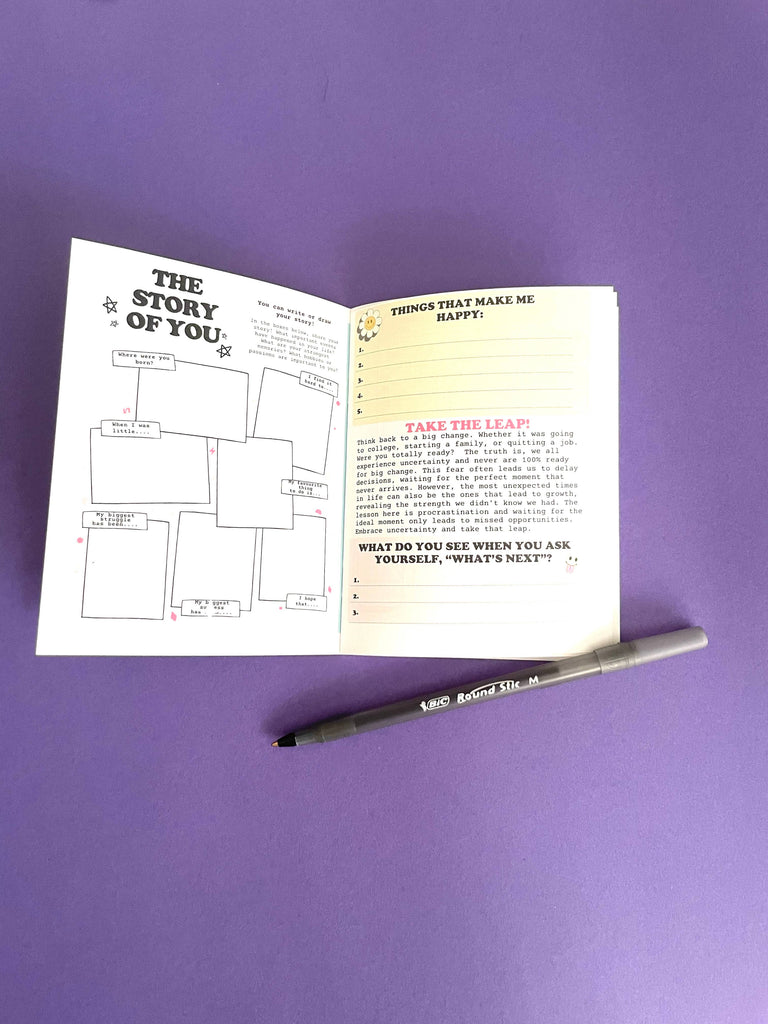 THE
STORY
OF YOU
You can write or draw
your story!
In the boxes below, share your
story! What important events
have happened in your life?
What are your strongest
memories? What hobbies or
passions are important to you?
Where were you
born?
I find it
hard to....
When I was
little....
My favourite
thing
to do is...
My biggest
struggle
has been....
My biggest
has
I hope
that....
THINGS THAT MAKE ME
HAPPY:
1.
2.
3.
4.
5.
TAKE THE LEAP!
Think back to a big change. Whether it was going
to college, starting a family, or quitting a job.
Were you totally ready? The truth is, we all
experience uncertainty and never are 100% ready
for big change. This fear often leads us to delay
decisions, waiting for the perfect moment that
never arrives. However, the most unexpected times
in life can also be the ones that lead to growth,
revealing the strength we didn't know we had. The
lesson here is procrastination and waiting for the
ideal moment only leads to missed opportunities.
Embrace uncertainty and take that leap.
WHAT DO YOU SEE WHEN YOU ASK
YOURSELF, “WHAT'S NEXT”?
1.
2.
3.
BIC Round Stic M